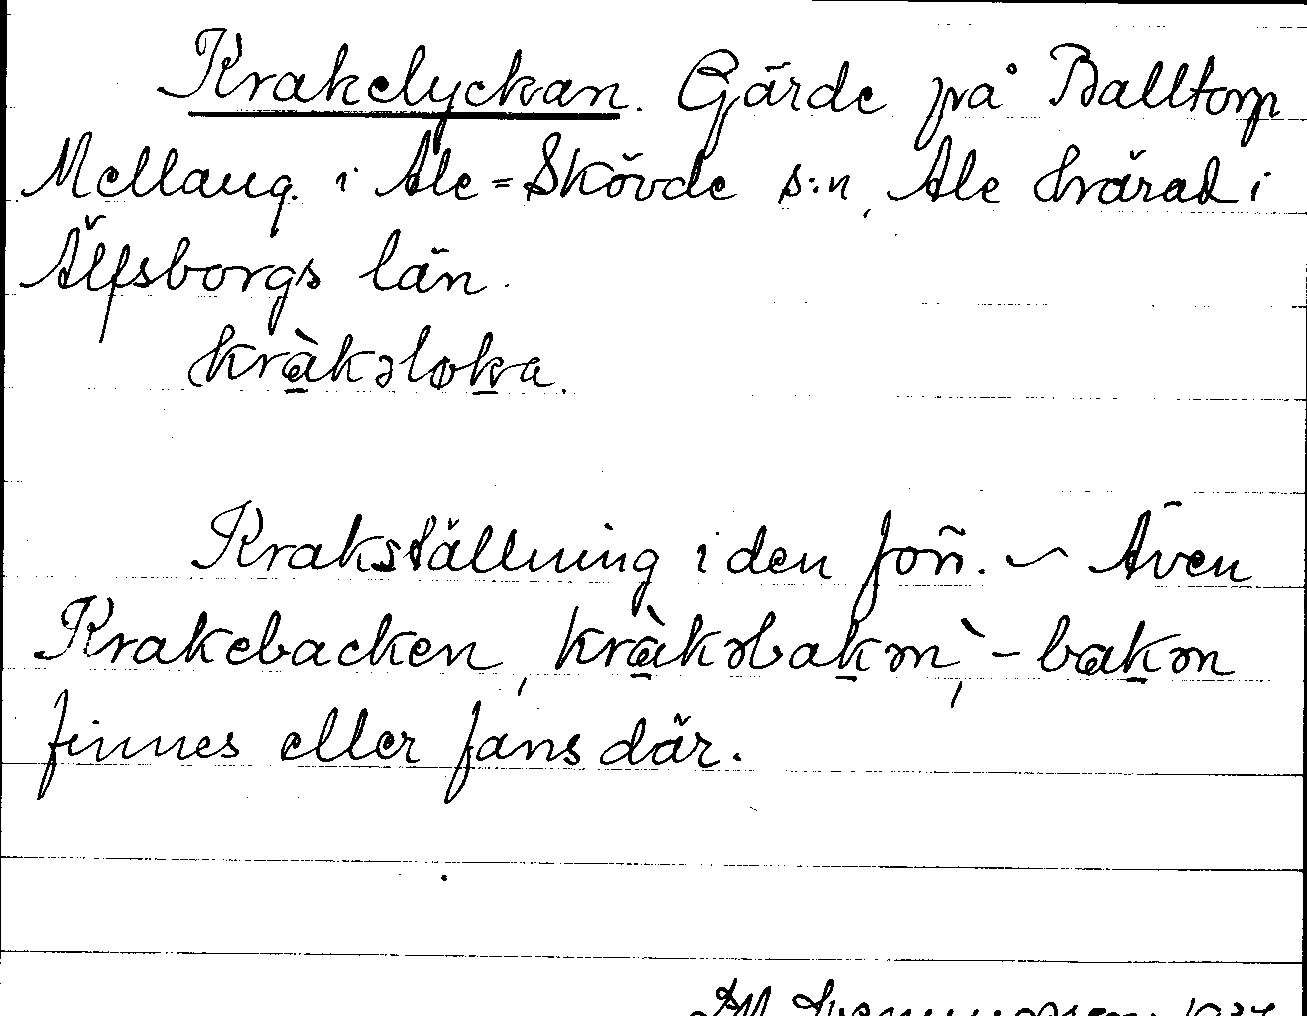 Krakelyckan. Gärde på Balltorp
Mellang. i Ale=Skövde s:n, Ale härad i
Älfsborgs län.
kràkəloka.
Krakställning i den forñ. ~ Även
Krakebacken, kràkəbakən, -bakən
finnes eller fans där.